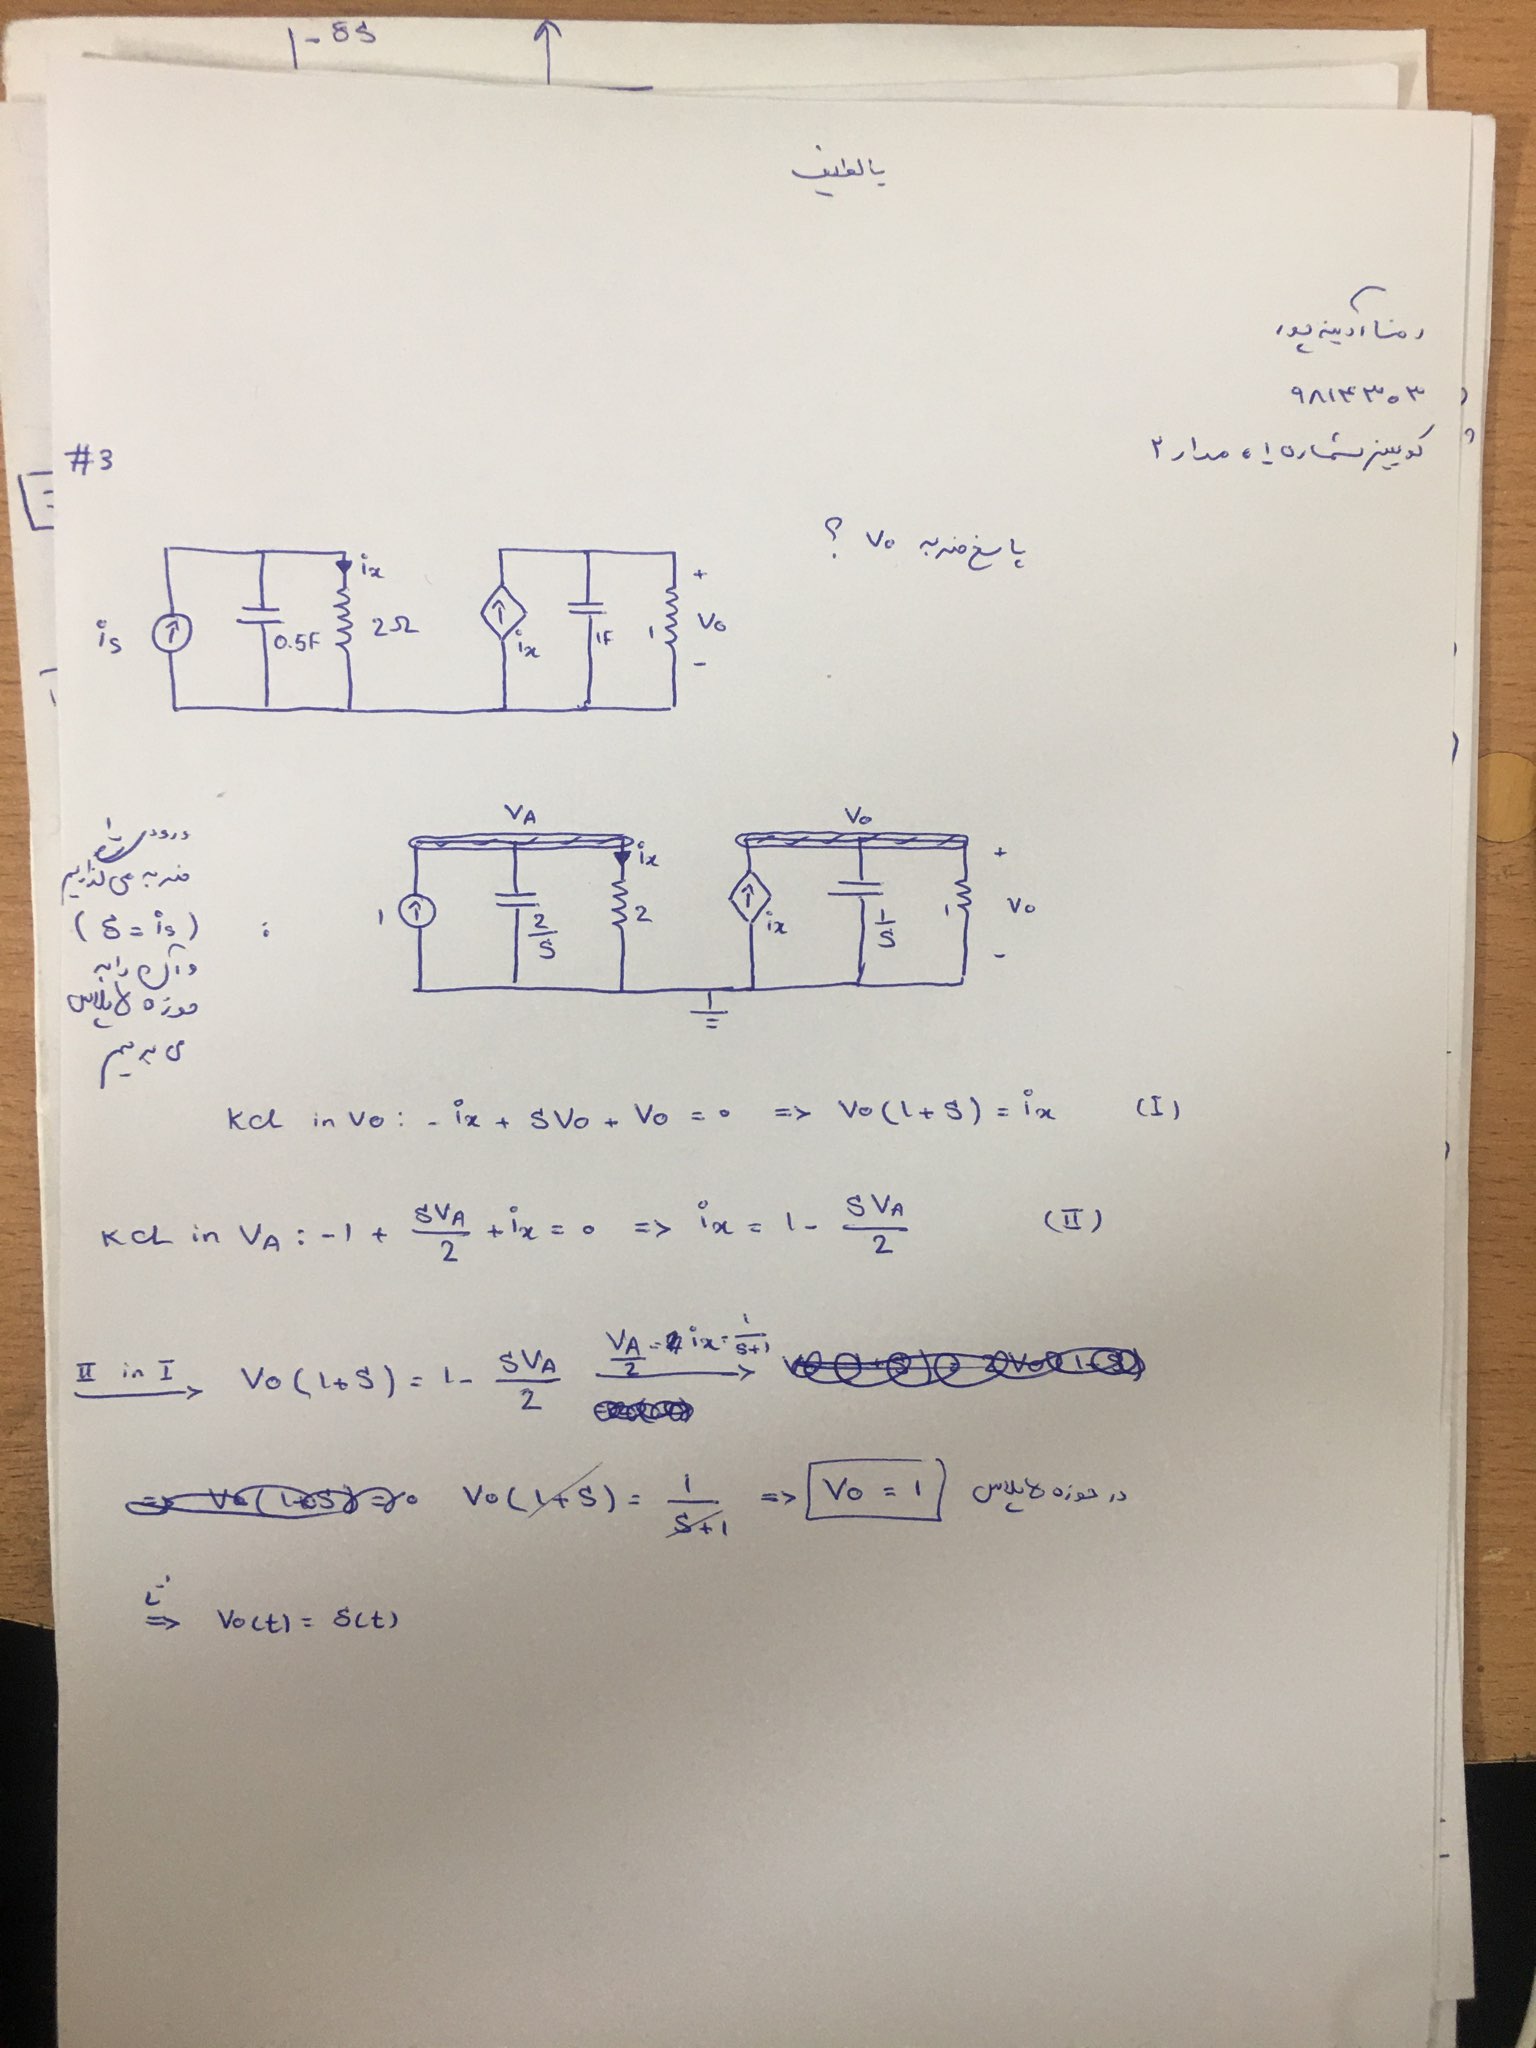 1-δs
یا لطیف
رضا آدینه پور
۹۸۱۴۳۰۳
کوییز شماره ۱، مدار ۲
#3
پاسخ ضربه Vo ؟
is 0.5F ix 2Ω ix 1F 1 + Vo -
ورودی را
ضربه می گذاریم
(δ = is) :
و آن را به
حوزه لاپلاس
می بریم
VA Vo
1 2/s ix 2 ix 1/s 1 + Vo -
KCL in Vo: - ix + SVo + Vo = 0 => Vo(1+S) = ix (I)
KCL in VA: -1 + SVA/2 + ix = 0 => ix = 1 - SVA/2 (II)
II in I → Vo(1+S) = 1 - SVA/2 VA/2 = ix = 1/(s+1) →
Vo(1+S) = 1/(S+1) => Vo = 1 در حوزه لاپلاس
L⁻¹ => Vo(t) = δ(t)